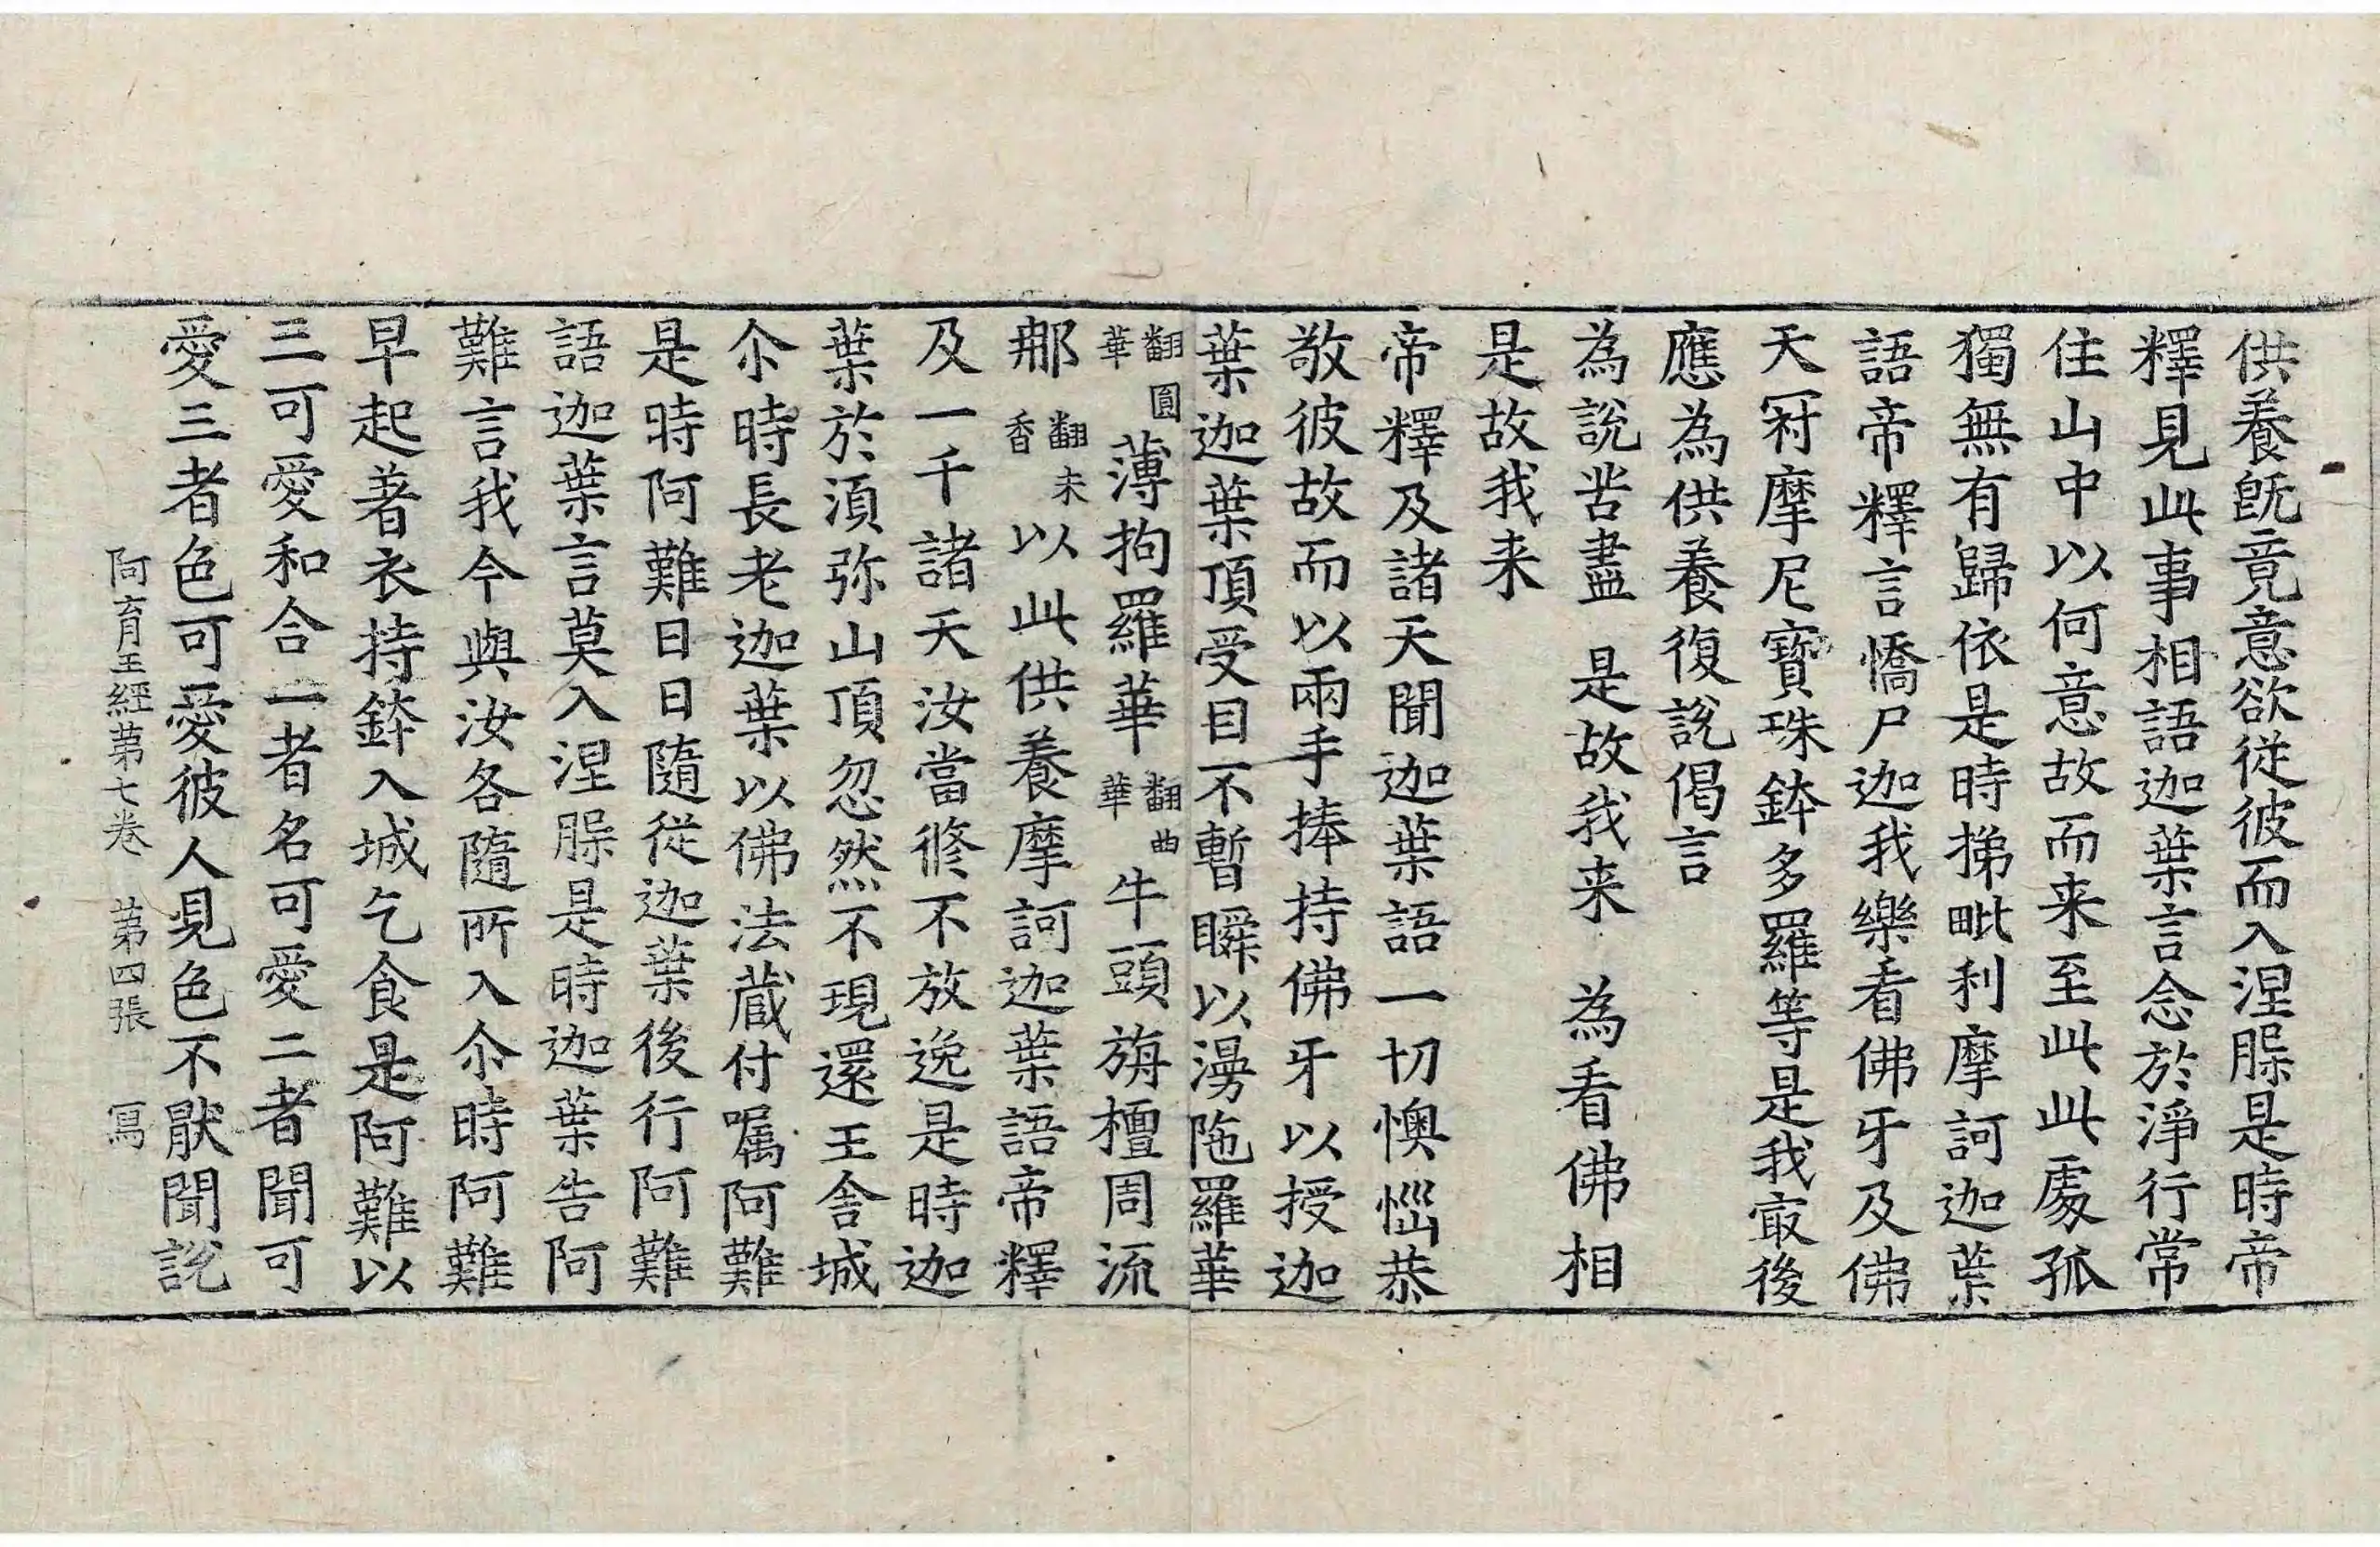 供養旣竟意欲従彼而入涅脲是時帝
釋見此事相語迦葉言念於淨行常
住山中以何意故而来至此此處孤
獨無有歸依是時挮毗利摩訶迦葉
語帝釋言憍尸迦我樂看佛牙及佛
天冠摩尼寶珠鉢多羅等是我㝡後
應為供養復說偈言
為說苦盡　是故我来　為看佛相
是故我来
帝釋及諸天聞迦葉語一切懊惱恭
敬彼故而以兩手捧持佛牙以授迦
葉迦葉頂受目不暫瞬以漫陁羅華
翻圓華薄拘羅華翻曲華牛頭旃檀周流
那翻末香以此供養摩訶迦葉語帝釋
及一千諸天汝當修不放逸是時迦
葉於湏弥山頂忽然不現還王舍城
尒時長老迦葉以佛法蔵付嘱阿難
是時阿難日日隨従迦葉後行阿難
語迦葉言莫入涅脲是時迦葉告阿
難言我今與汝各隨所入尒時阿難
早起著衣持鉢入城乞食是阿難以
三可愛和合一者名可愛二者聞可
愛三者色可愛彼人見色不厭聞說
阿育王經第七卷　第四張　冩